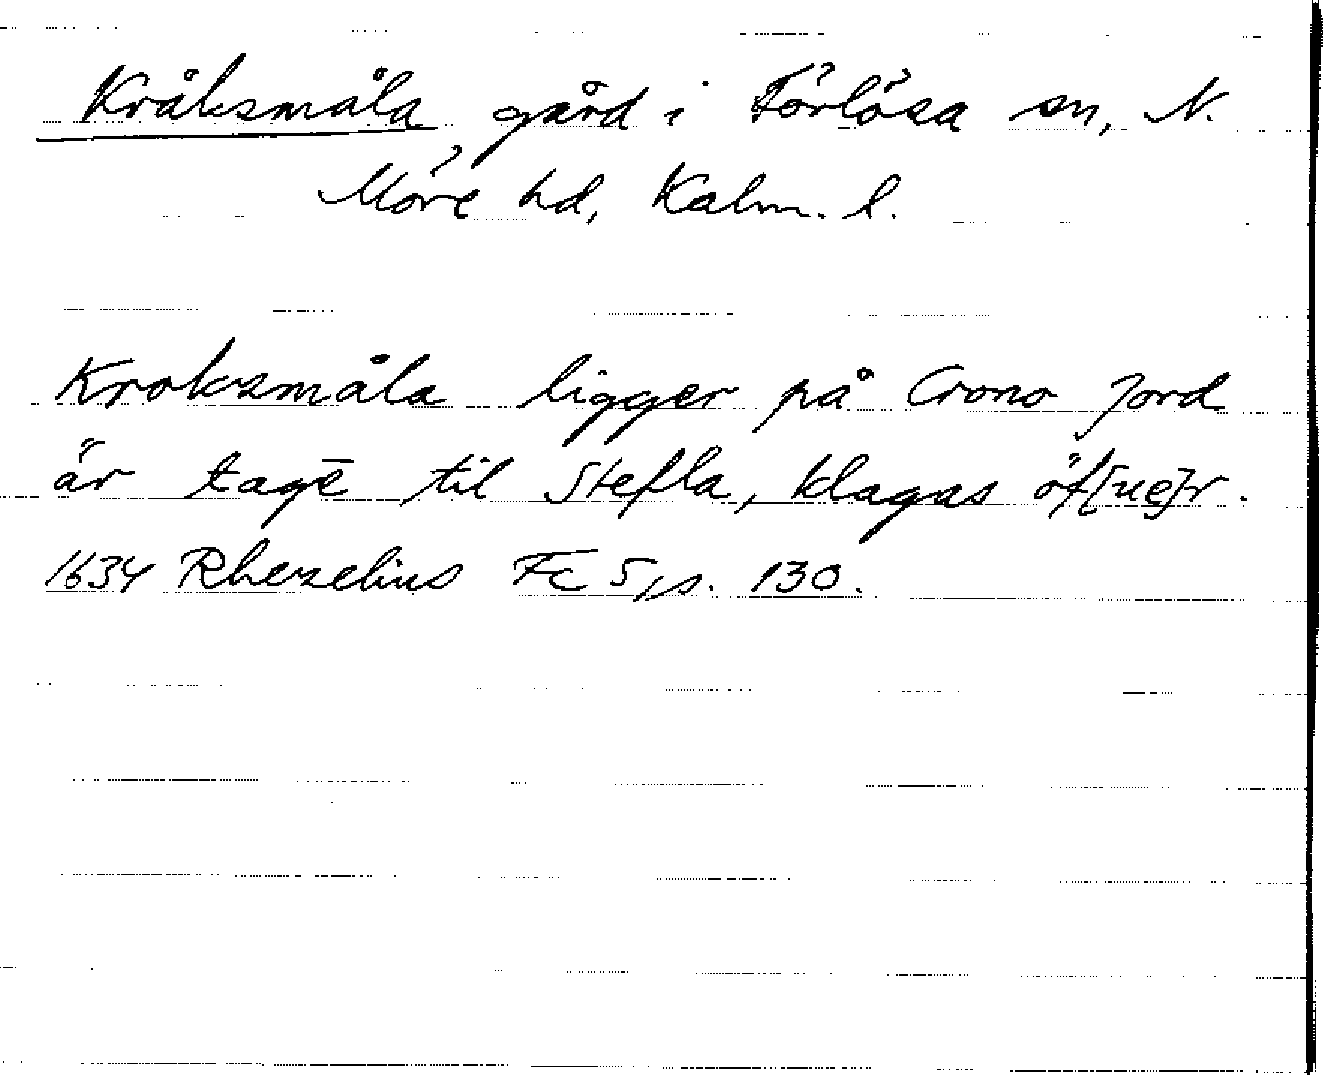 Kråksmåla gård i Förlösa sn, N.
Möre hd, Kalm. l.
Kroksmåla ligger på Crono Jord
är tagē til Stefla, klagas öf[ue]r.
1634 Rhezelius Fc 5, s. 130.